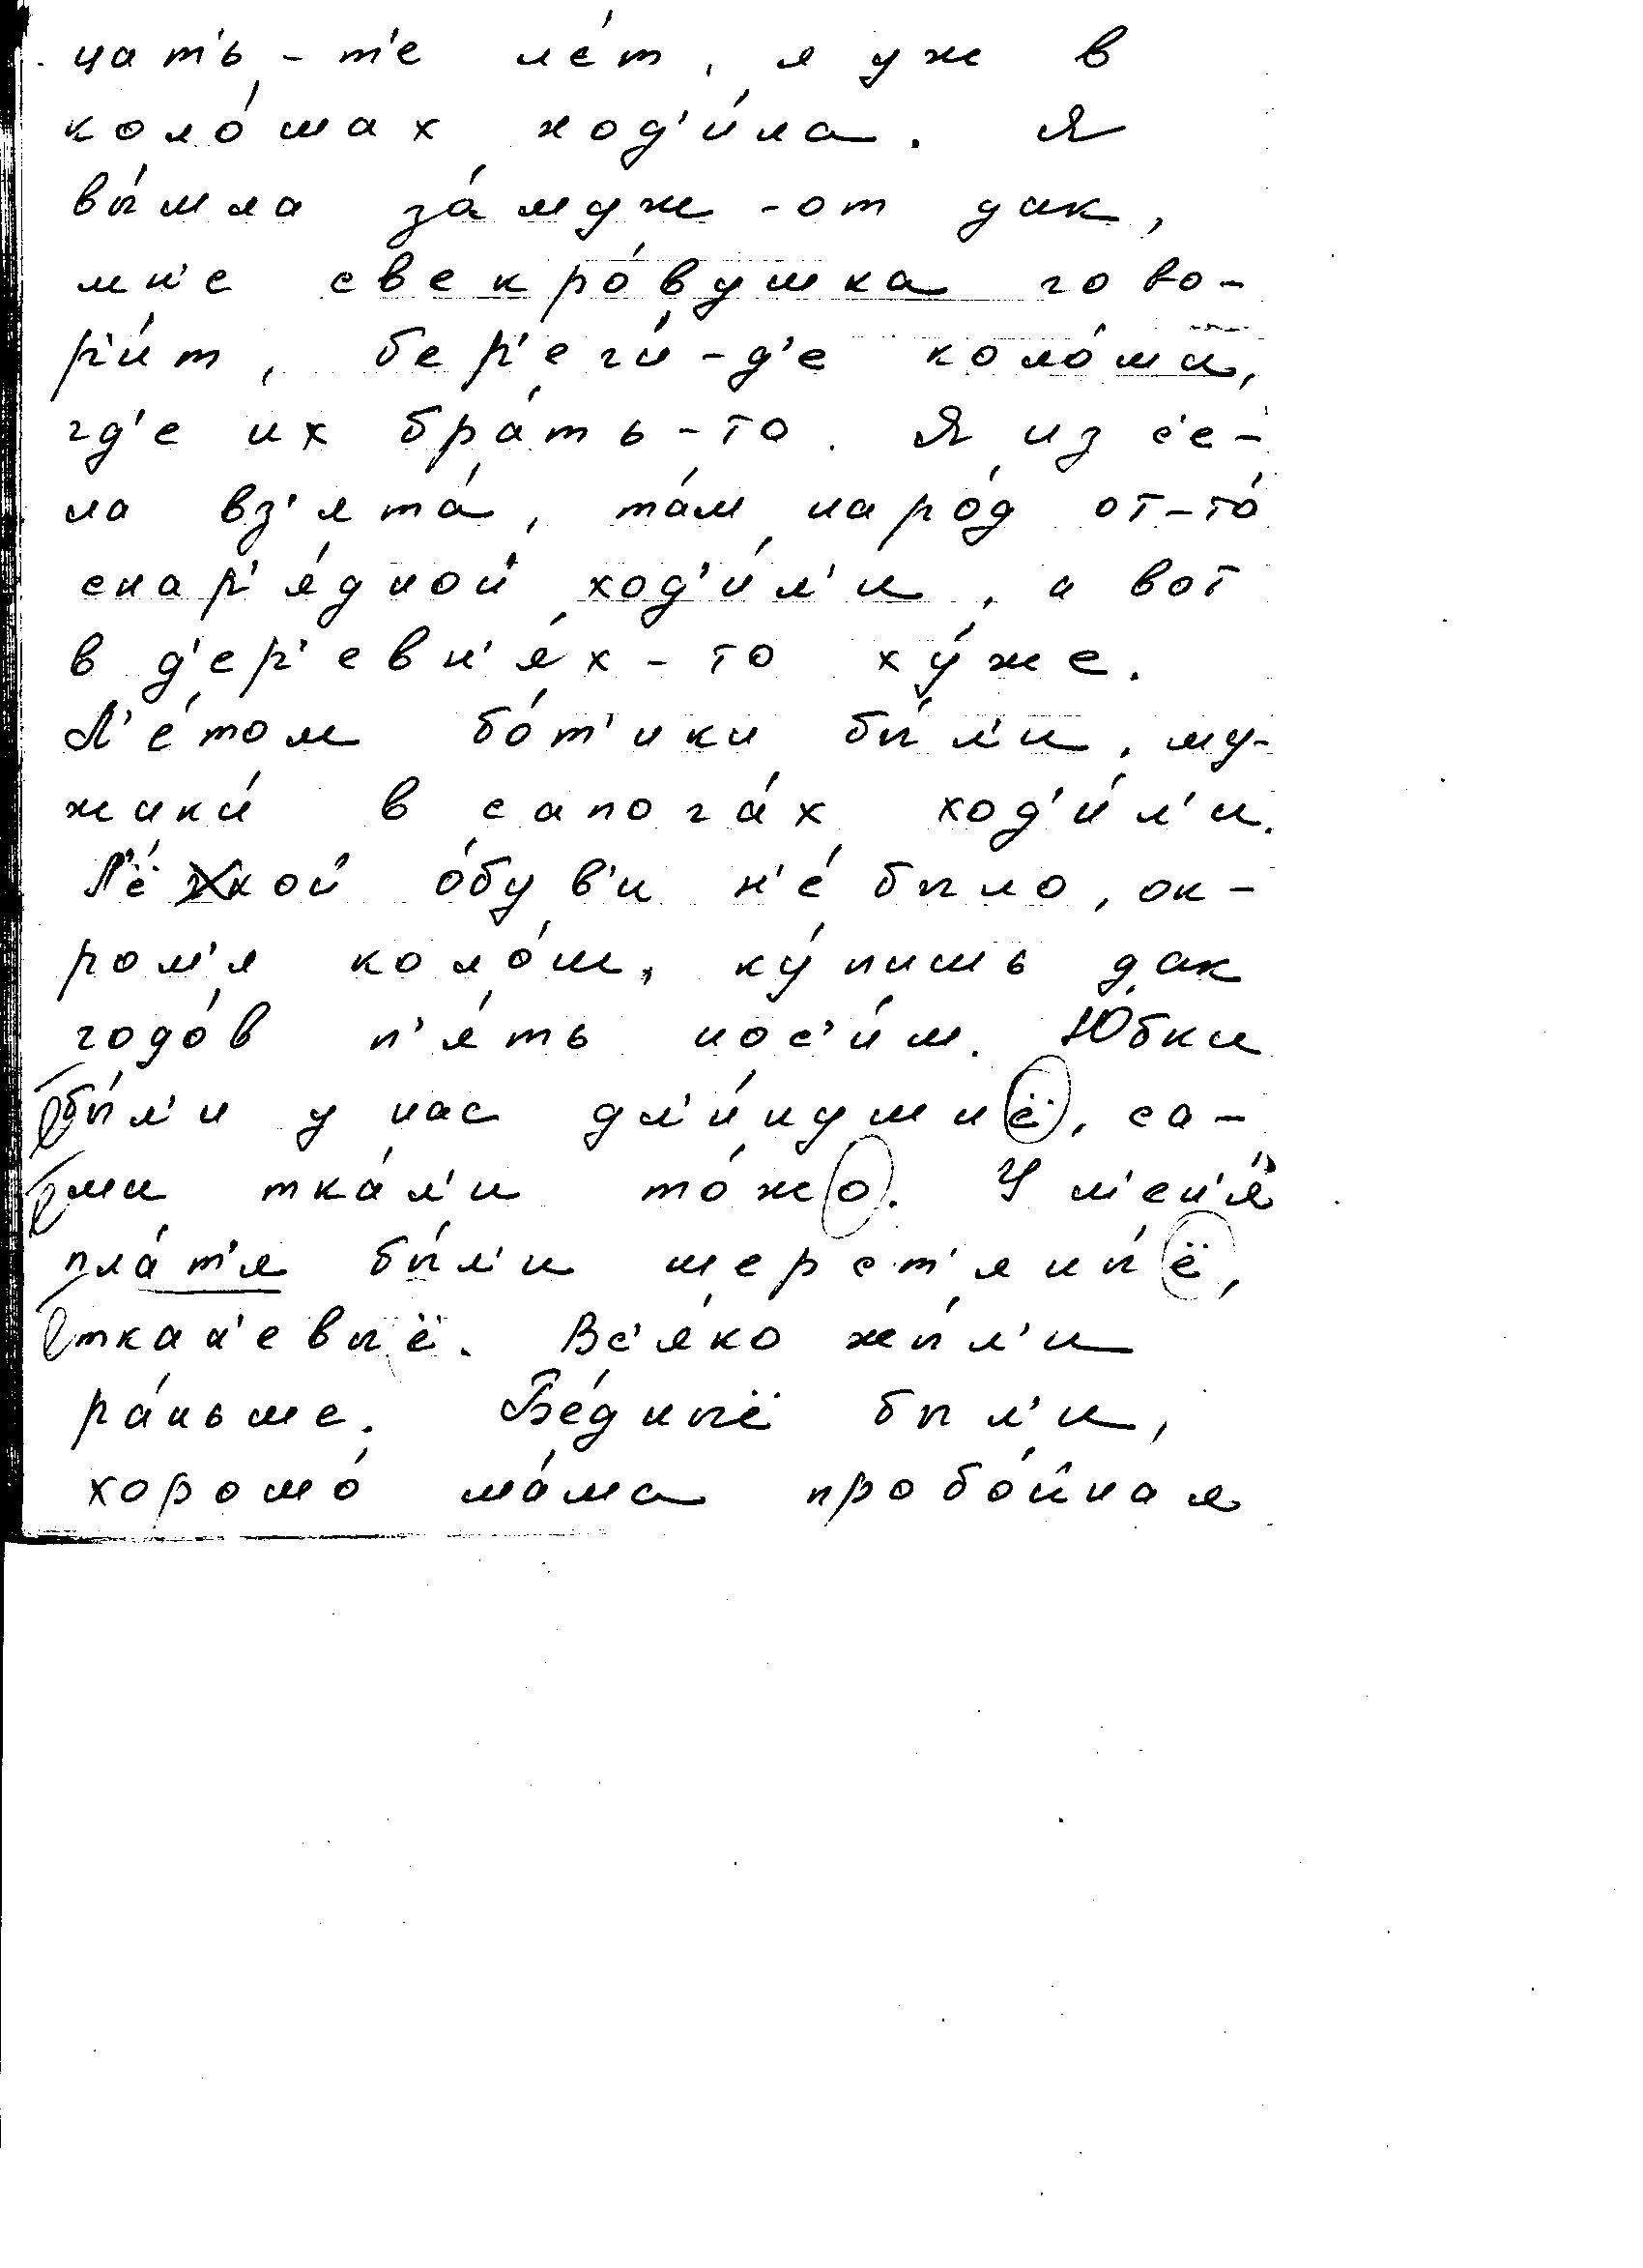 цат'ь-т'е ле́т, я уж в
коло́шах ход'и́ла. Я
вы́шла за́муж-от дак,
мн'е свекро́вушка гово-
р'и́т, бер'еги́-д'е коло́ши,
гд'е их бра́ть-то. Я из с'е-
ла вз'ята́, та́м наро́д от-то́
снар'я́дной ход'и́л'и, а вот
в д'ер'евн'я́х-то ху́же.
Л'е́том бо́т'ики бы́л'и, му-
жики́ в сапога́х ход'и́л'и.
Л'ё́хкой о́був'и н'е́ было, ок-
ром'я коло́ш, ку́пишь дак
годо́в п'я́ть нос'и́м. Ю́бки
бы́л'и у нас дл'и́нушшиё, са-
ми тка́л'и то́жо. У м'ен'я́
пла́т'я бы́л'и шерст'яны́ё,
ткан'евыё. Вс'я́ко жы́л'и
ра́ньше. Бе́дныё был'и,
хорошо́ ма́ма пробо́йная